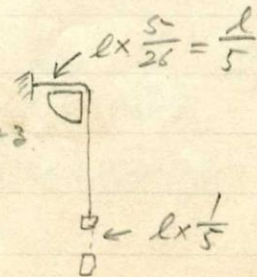 l × 5/26 = l/5
3
l × 1/5